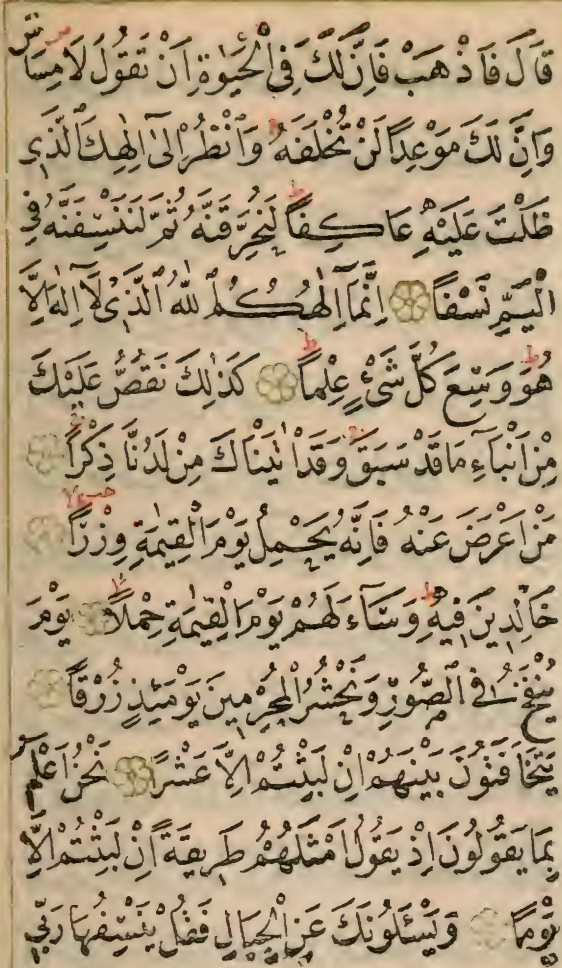 قَالَ فَاذْهَبْ فَاِنَّ لَكَ فِى الْحَيٰوةِ اَنْ تَقُولَ لَا مِسَاسَ
وَاِنَّ لَكَ مَوْعِدًا لَنْ تُخْلَفَهُ وَانْظُرْ اِلٰٓى اِلٰهِكَ الَّذِى
ظَلْتَ عَلَيْهِ عَاكِفًا لَنُحَرِّقَنَّهُ ثُمَّ لَنَنْسِفَنَّهُ فِى
الْيَمِّ نَسْفًا اِنَّمَٓا اِلٰهُكُمُ اللّٰهُ الَّذِى لَٓا اِلٰهَ اِلَّا
هُوَ وَسِعَ كُلَّ شَىْءٍ عِلْمًا كَذٰلِكَ نَقُصُّ عَلَيْكَ
مِنْ اَنْبَٓاءِ مَا قَدْ سَبَقَ وَقَدْ اٰتَيْنَاكَ مِنْ لَدُنَّا ذِكْرًا
مَنْ اَعْرَضَ عَنْهُ فَاِنَّهُ يَحْمِلُ يَوْمَ الْقِيٰمَةِ وِزْرًا
خَالِدِينَ فِيهِ وَسَٓاءَ لَهُمْ يَوْمَ الْقِيٰمَةِ حِمْلًا يَوْمَ
يُنْفَخُ فِى الصُّورِ وَنَحْشُرُ الْمُجْرِمِينَ يَوْمَئِذٍ زُرْقًا
يَتَخَافَتُونَ بَيْنَهُمْ اِنْ لَبِثْتُمْ اِلَّا عَشْرًا نَحْنُ اَعْلَمُ
بِمَا يَقُولُونَ اِذْ يَقُولُ اَمْثَلُهُمْ طَرِيقَةً اِنْ لَبِثْتُمْ اِلَّا
يَوْمًا وَيَسْـَٔلُونَكَ عَنِ الْجِبَالِ فَقُلْ يَنْسِفُهَا رَبِّى